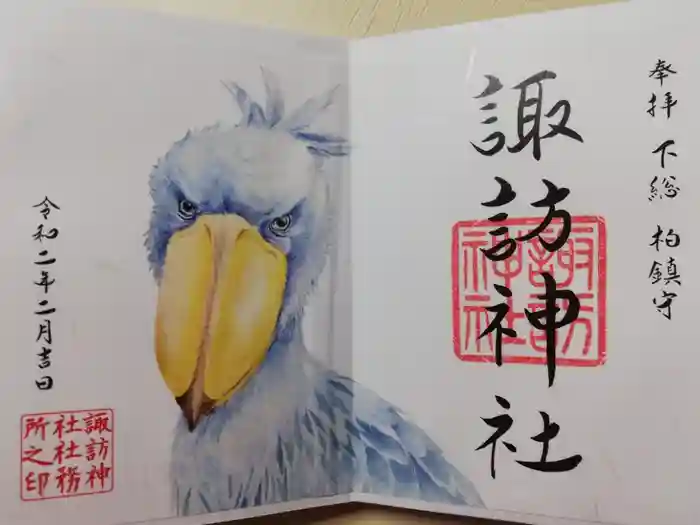 奉拝 下総 柏鎮守
諏訪神社
諏訪神社
令和二年二月吉日
諏訪神
社社務
所之印